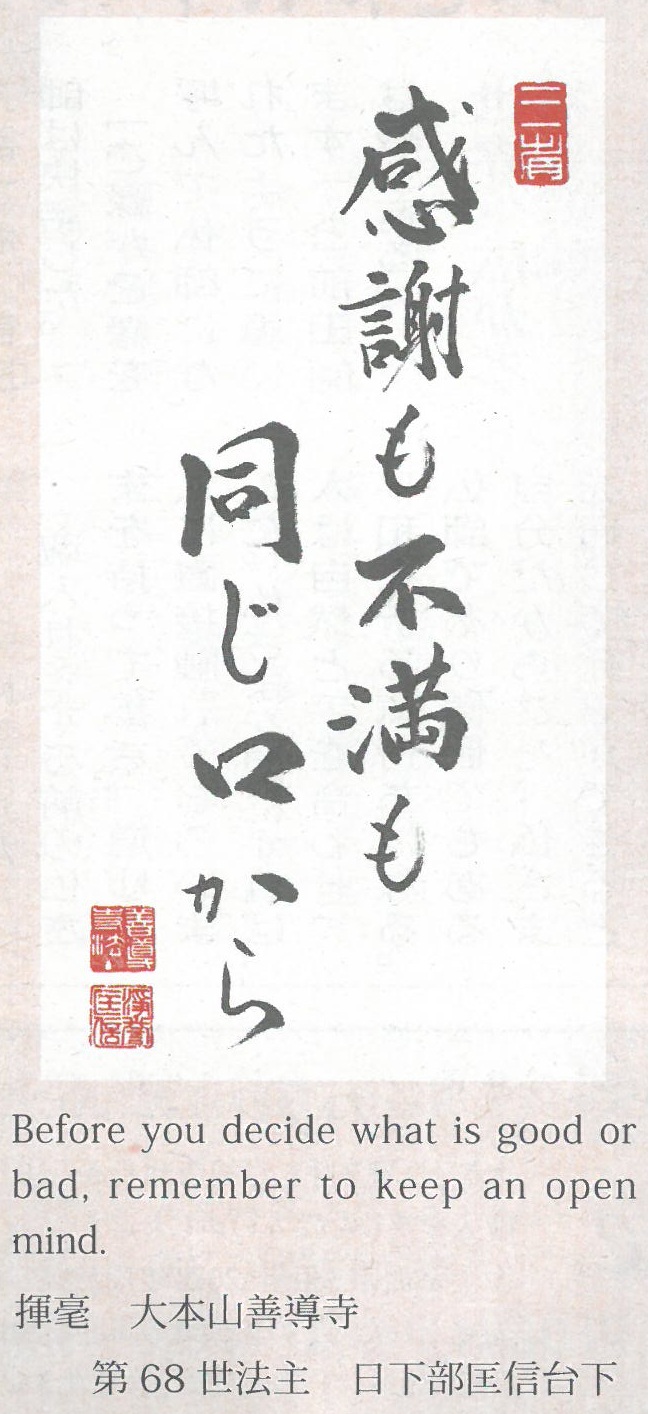 感謝も不満も
同じ口から
Before you decide what is good or
bad, remember to keep an open
mind.
揮毫　大本山善導寺
第68世法主　日下部匡信台下